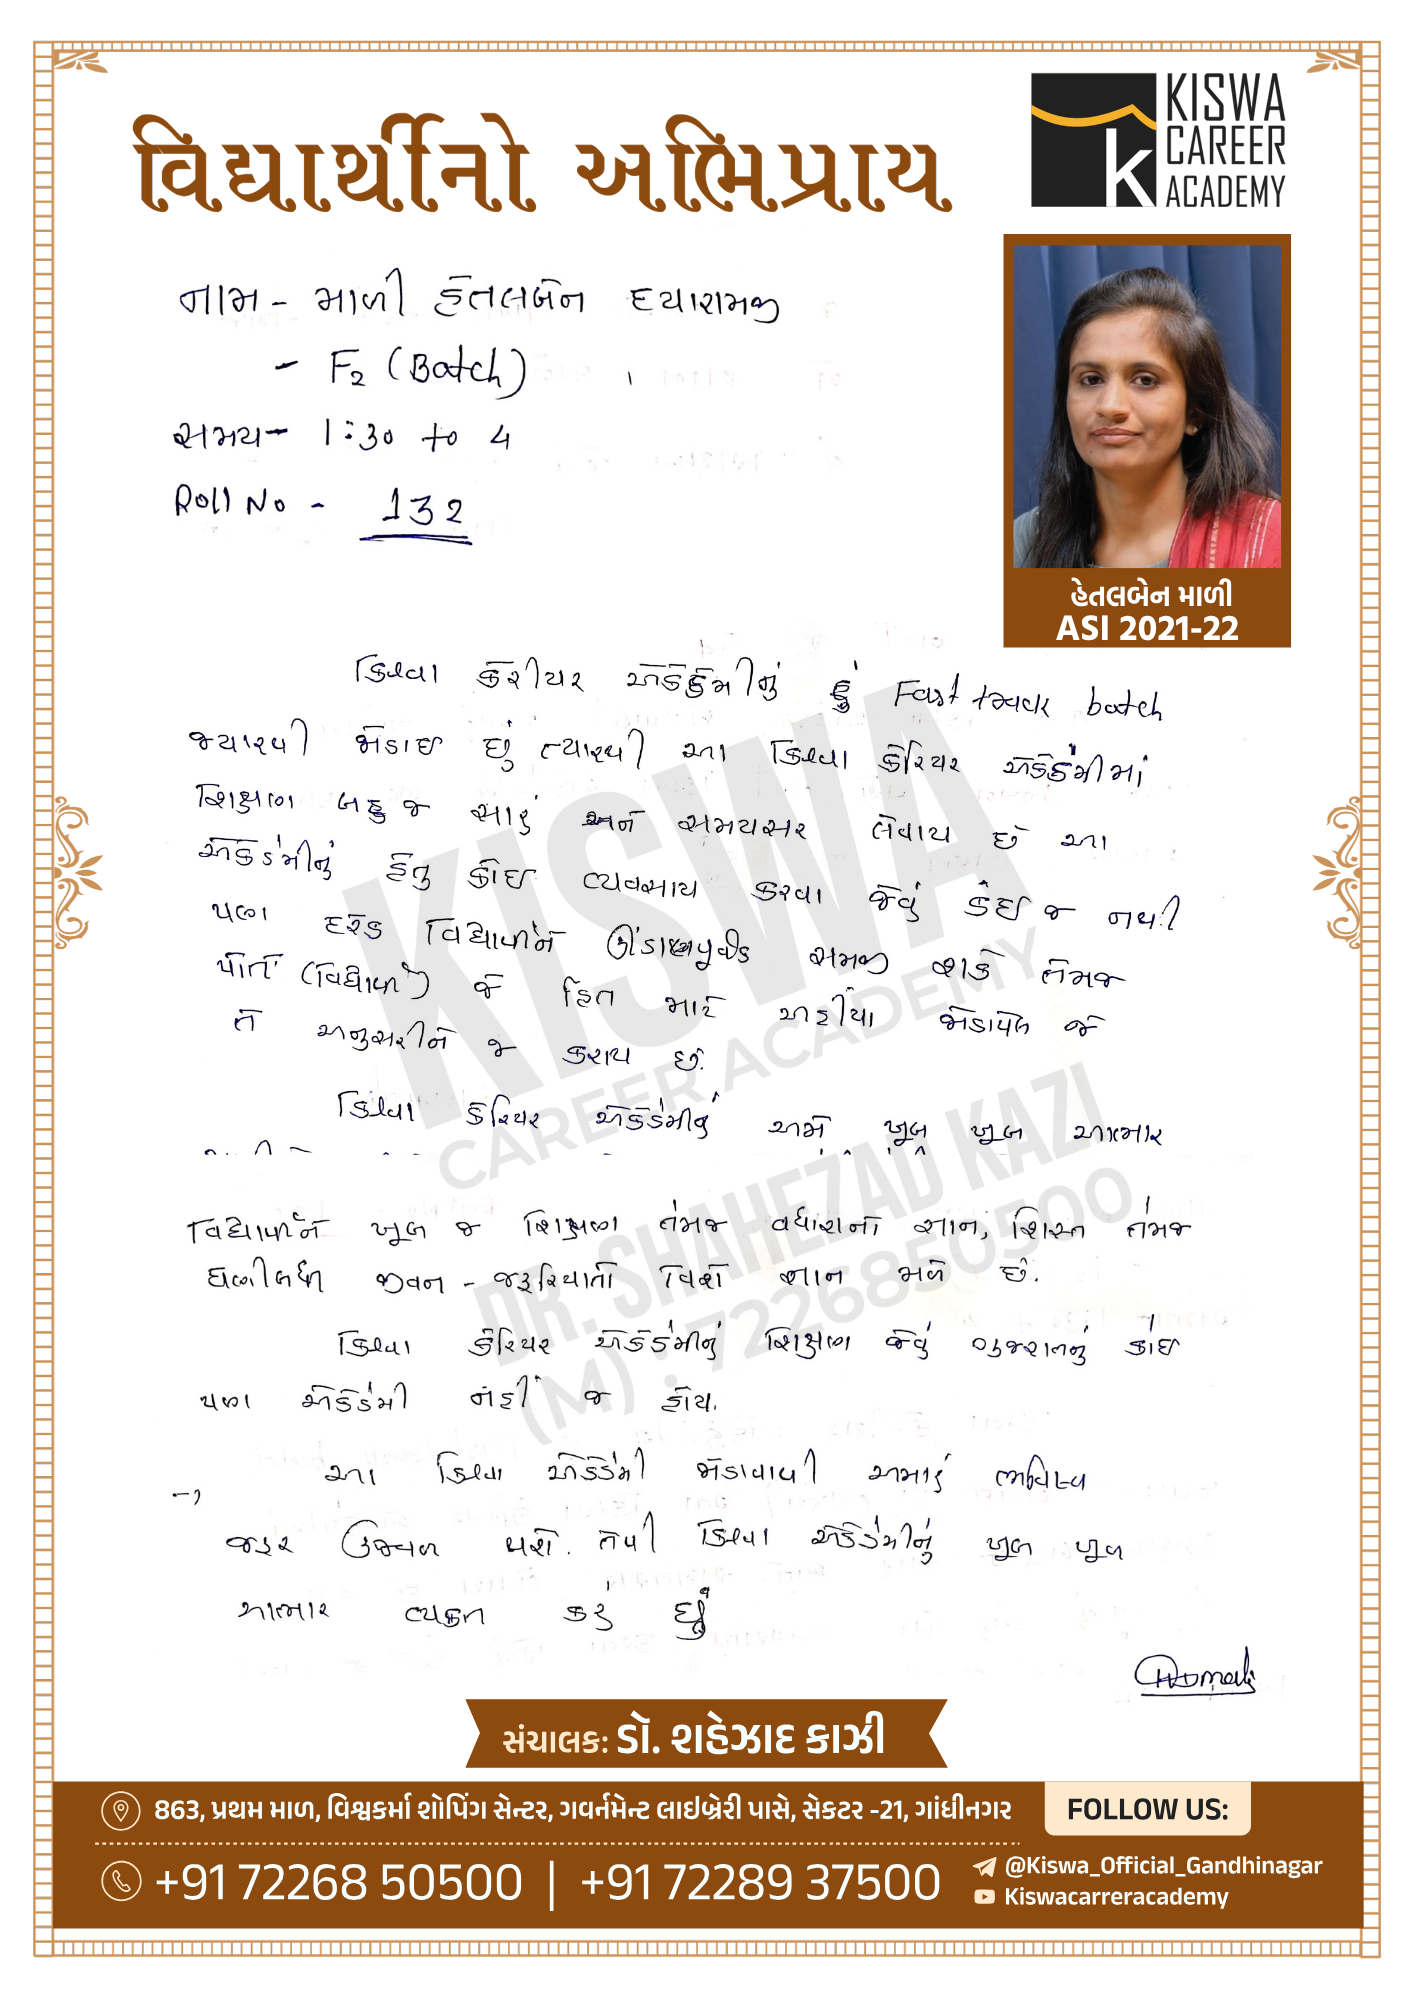 વિદ્યાર્થીનો અભિપ્રાય
KISWA
CAREER
ACADEMY
નામ - માળી હેતલબેન દયારામજી
- F2 (Batch)
સમય - 1:30 to 4
Roll No - 132
હેતલબેન માળી
ASI 2021-22
કિસ્વા કેરીયર એકેડેમીનું હું Fast track batch
જ્યારથી જોડાઈ છું ત્યારથી આ કિસ્વા કેરિયર એકેડેમીમાં
શિક્ષણ બહુ જ સારું અને સમયસર લેવાય છે આ
એકેડેમીનું હેતુ કોઈ વ્યવસાય કરવા જેવું કંઈ જ નથી
પણ દરેક વિદ્યાર્થીને ઊંડાણપૂર્વક સમજી શકે તેમજ
પોતે (વિદ્યાર્થી) જે હિત માટે અહીંયા જોડાયેલ જે
તે અનુસરીને જ કરાય છે.
કિસ્વા કેરિયર એકેડેમીનું અમે ખૂબ ખૂબ આભાર
વિદ્યાર્થીને ખૂબ જ શિક્ષણ તેમજ વધારાનો જ્ઞાન, શિસ્ત તેમજ
ઘણીબધી જીવન - જરૂરિયાતો વિશે જ્ઞાન મળે છે.
કિસ્વા કેરિયર એકેડેમીનું શિક્ષણ જેવું ગુજરાતનું કોઈ
પણ એકેડેમી નહીં જ હોય.
આ કિસ્વા એકેડેમી જોડાવાથી અમારું ભવિષ્ય
જરૂર ઉજ્વળ થશે. તેથી કિસ્વા એકેડેમીનું ખૂબ ખૂબ
આભાર વ્યક્ત કરું છું
KISWA
CAREER ACADEMY
DR. SHAHEZAD KAZI
(M) : 7226850500
સંચાલક: ડૉ. શહેઝાદ કાઝી
863, પ્રથમ માળ, વિશ્વકર્મા શોપિંગ સેન્ટર, ગવર્નમેન્ટ લાઇબ્રેરી પાસે, સેકટર -21, ગાંધીનગર
FOLLOW US:
+91 72268 50500 | +91 72289 37500
@Kiswa_Official_Gandhinagar
Kiswacarreracademy